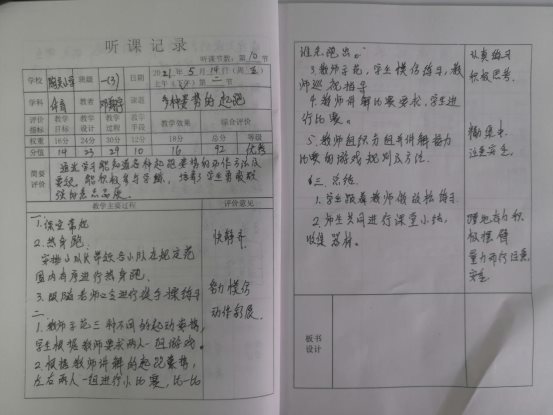 听课记录
听课节数：第10节
学校 班级 一(3) 日期 2021年5月14日(周五)
上午(下午)第二节
学科 体育 教者 课题 多种姿势的起跑
评价指标 教学目标 教学设计 教学过程 教学手段 教学效果 综合评价
权重 16分 24分 30分 12分 18分 总分 等级
分值 14 23 29 10 16 92 优秀
简要评价
通过学习能知道各种起跑姿势的动作方法及
要领，能积极参与学练，培养了学生勇敢顽
强的意志品质。
教学主要过程 评价意见
一、
1.课堂常规
2.热身跑：
安排小队长带领各小队在规定范
围内有序进行热身跑。
3.跟随老师口令进行徒手操练习
二
1.教师示范三种不同的起动姿势，
学生根据教师要求两人一组游戏。
2.根据教师讲解的起跑姿势，
左右两人一组进行小比赛，比一比
快静齐
努力模仿
动作舒展
谁先跑出。
3.教师示范，学生模仿练习，教
师巡视指导
4.教师讲解比赛要求，学生进
行比赛。
5.教师组织分组并讲解接力
比赛的游戏规则及方法。
三、总结
1.学生跟着教师做放松练习
2.师生共同进行课堂小结，
收集器材。
认真练习
积极思考。
注意安全。
积极摆臂
量力而行注意
安全
板书设计